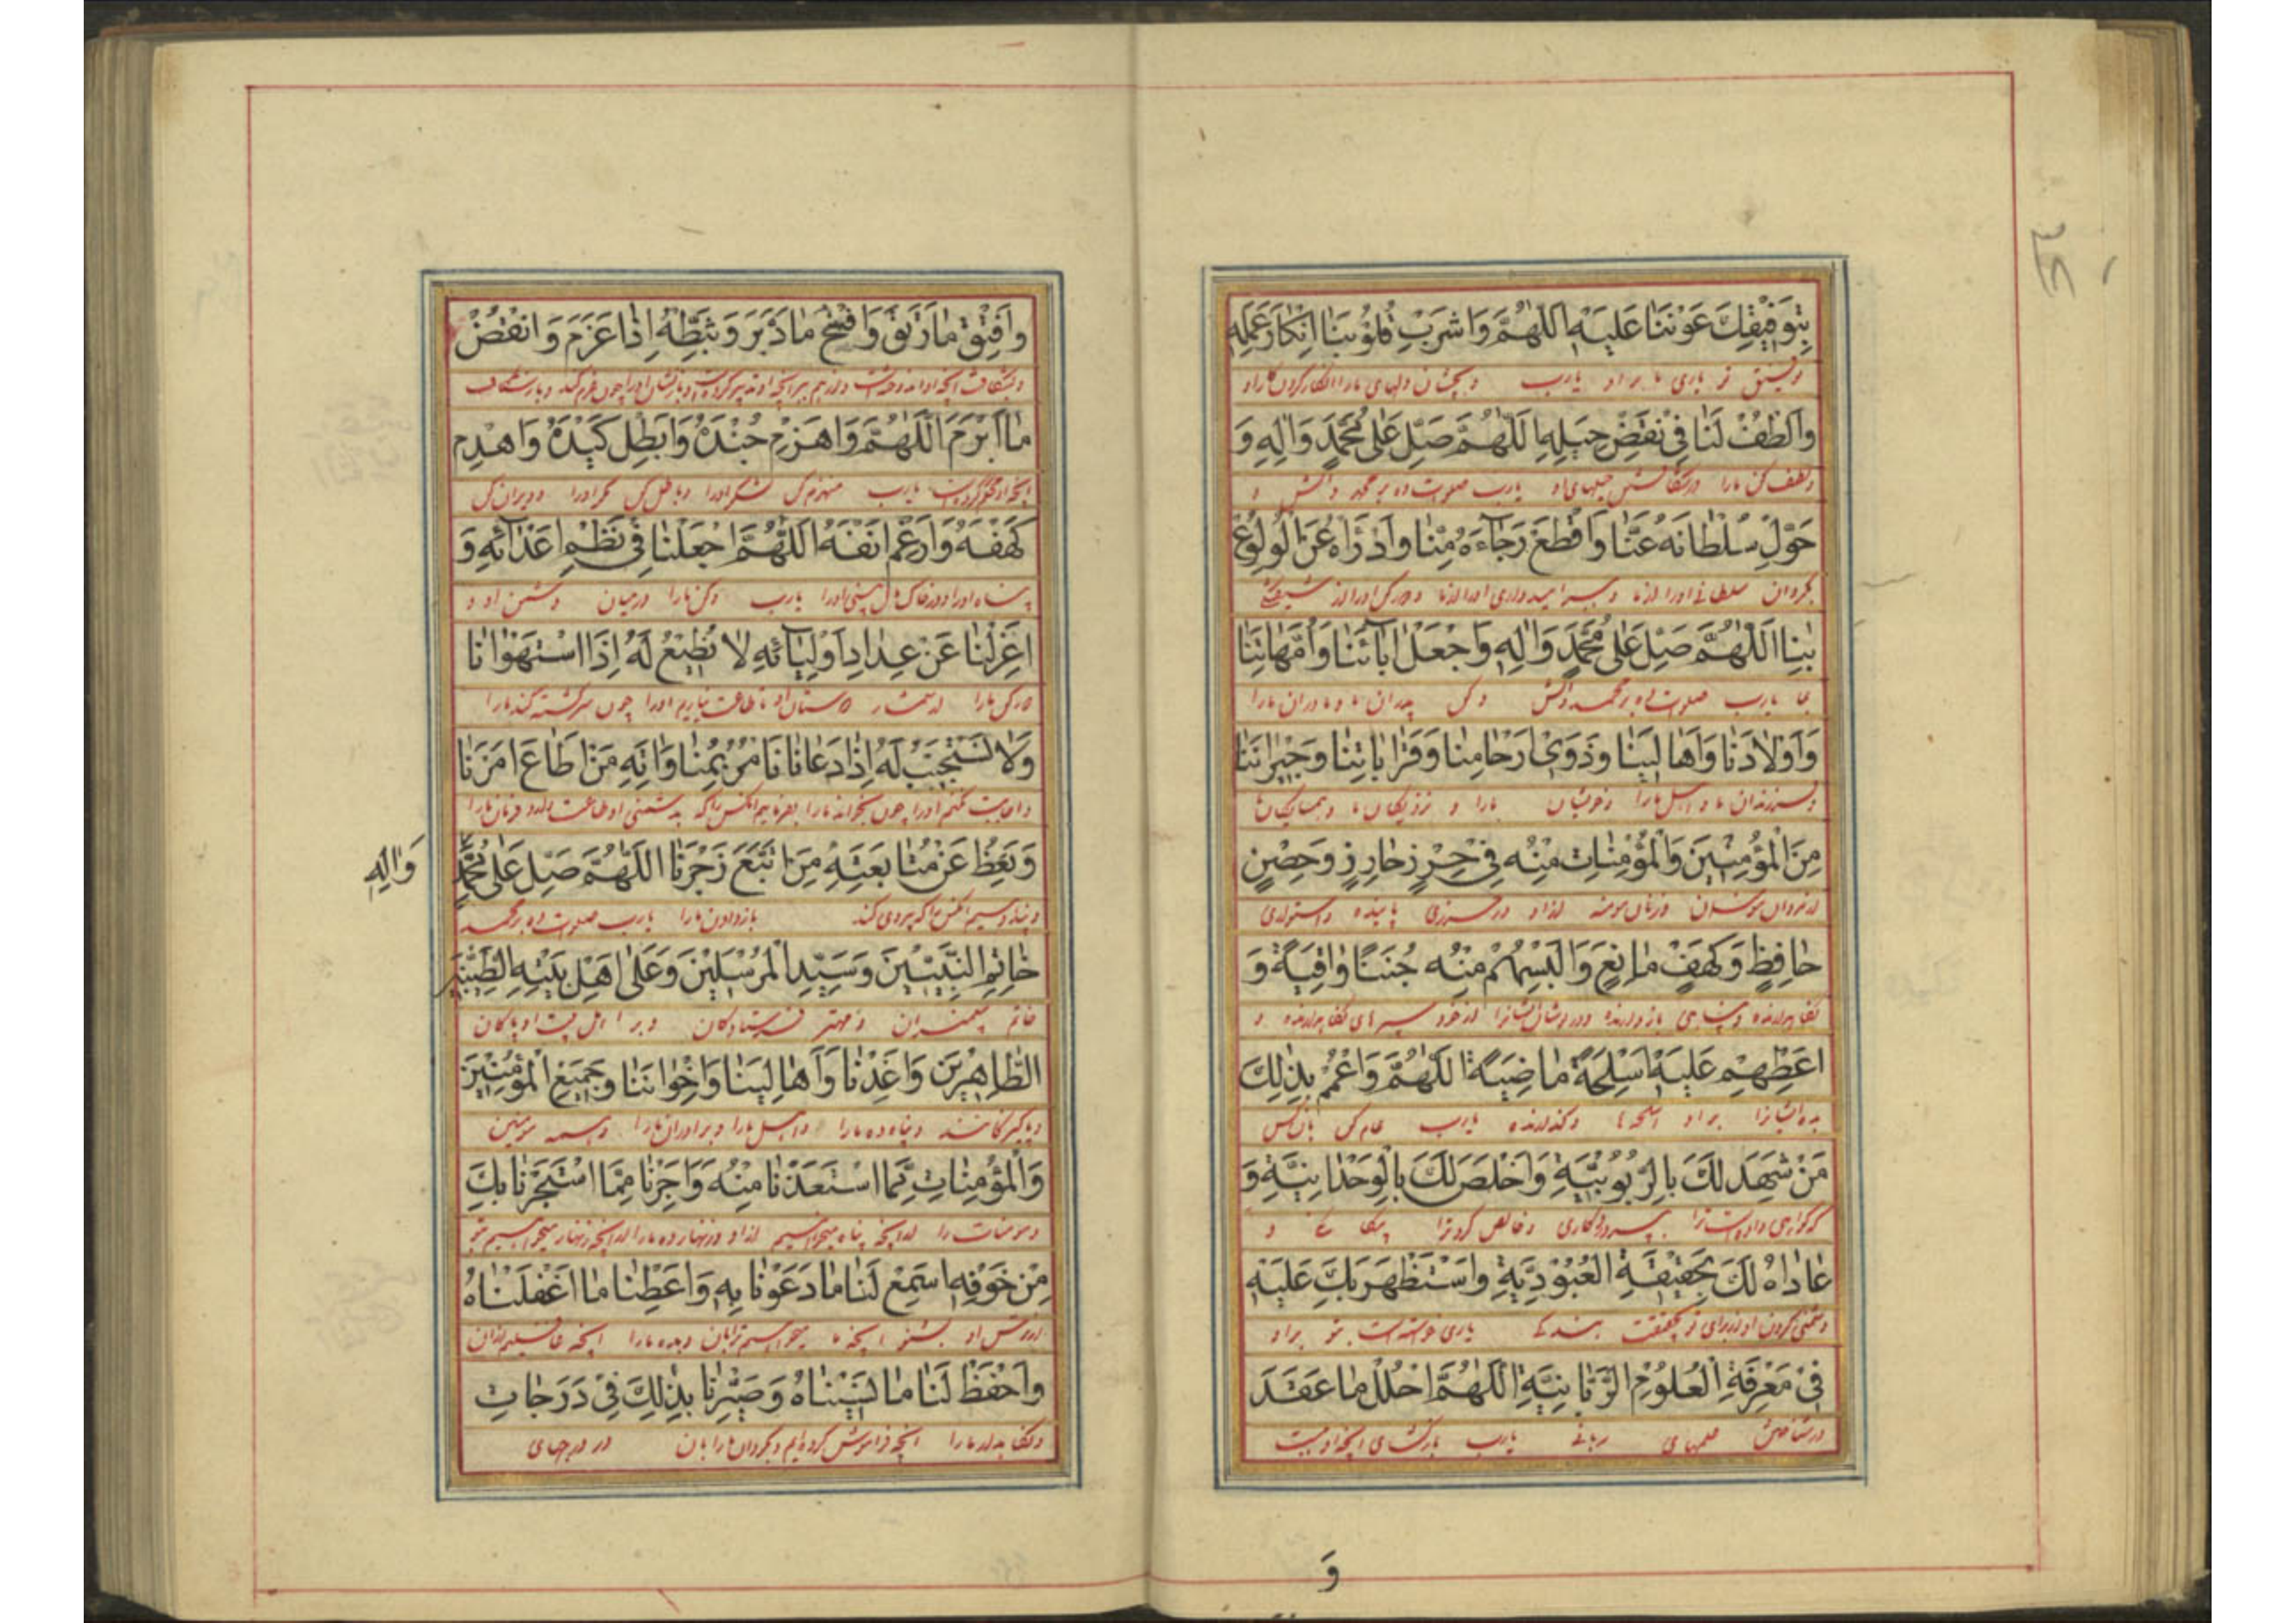 بِتَوْفِيقِكَ عَوْنَنَا عَلَيْهِ اَللّٰهُمَّ وَاشْرَبْ قُلُوبَنَا اِنْكَارَ عَمَلِهِ
توفیق تو یاری ما بر او یارب و بچشان دلهای ما را انکار کردن کار او
وَالْطُفْ لَنَا فِي نَقْضِ حِيَلِهِ اَللّٰهُمَّ صَلِّ عَلٰى مُحَمَّدٍ وَاٰلِهِ وَ
و لطف کن ما را در شکستن حیلهای او یارب صلوات ده بر محمد و آلش و
حَوِّلْ سُلْطَانَهُ عَنَّا وَاقْطَعْ رَجَاءَهُ مِنَّا وَادْرَاهُ عَنِ الْوُلُوعِ
بگردان سلطانی او را از ما و ببر امیدواری او را از ما و دور کن او را از شیفتگی
بِنَا اَللّٰهُمَّ صَلِّ عَلٰى مُحَمَّدٍ وَاٰلِهِ وَاجْعَلْ اٰبَائَنَا وَاُمَّهَاتِنَا
بما یارب صلوات ده بر محمد و آلش و کن پدران ما و مادران ما را
وَاَوْلَادَنَا وَاَهَالِيَنَا وَذَوِي اَرْحَامِنَا وَقَرَابَاتِنَا وَجِيرَانَنَا
و فرزندان ما و اهل ما را و خویشان ما را و نزدیکان ما و همسایگان ما
مِنَ الْمُؤْمِنِينَ وَالْمُؤْمِنَاتِ مِنْهُ فِي حِرْزٍ حَارِزٍ وَحِصْنٍ
از مردان مؤمنان و زنان مومنه از او در حرزی پاینده و استواری
حَافِظٍ وَكَهْفٍ مَانِعٍ وَاَلْبِسْهُمْ مِنْهُ جُنَنًا وَاقِيَةً وَ
نگاهدارنده و پناهی بازدارنده و در پوشان ایشانرا از خود سپرهای نگاهدارنده و
اَعْطِهِمْ عَلَيْهِ اَسْلِحَةً مَاضِيَةً اَللّٰهُمَّ وَاعْمُمْ بِذٰلِكَ
بده ایشانرا بر او اسلحها گذرنده یارب عام کن بان کس
مَنْ شَهِدَ لَكَ بِالرُّبُوبِيَّةِ وَاَخْلَصَ لَكَ بِالْوَحْدَانِيَّةِ وَ
که گواهی داده است ترا بپروردگاری و خالص کرد ترا بیگانگی و
عَادَاهُ لَكَ بِحَقِيقَةِ الْعُبُودِيَّةِ وَاسْتَظْهَرَ بِكَ عَلَيْهِ
و دشمنی کردن او از برای تو بحقیقت بندگی یاری خواسته است بتو بر او
فِي مَعْرِفَةِ الْعُلُومِ الرَّبَّانِيَّةِ اَللّٰهُمَّ احْلُلْ مَا عَقَدَ
در شناختن علمهای ربانی یارب بازگشای آنچه او بست
وَ
وَافْتِقْ مَا رَتَقَ وَافْسَخْ مَا دَبَّرَ وَثَبِّطْهُ اِذَا عَزَمَ وَانْقُضْ
و بشکاف آنچه او
مَا اَبْرَمَ اَللّٰهُمَّ وَاهْزِمْ جُنْدَهُ وَاَبْطِلْ كَيْدَهُ وَاهْدِمْ
یارب منهزم کن لشکر او را و باطل کن مکر او را و ویران کن
كَهْفَهُ وَاَرْغِمْ اَنْفَهُ اَللّٰهُمَّ اجْعَلْنَا فِي نَظْمِ اَعْدَائِهِ وَ
پناه او را و در خاک مال بینی او را یارب و کن ما را در میان دشمن او و
اعْزِلْنَا عَنْ عِدَادِ اَوْلِيَائِهِ لَا نُطِيعُ لَهُ اِذَا اسْتَهْوَانَا
دور کن ما را از شمار دوستان او تا طاعت نیاریم او را چون سرگشته کند ما را
وَلَا نَسْتَجِيبُ لَهُ اِذَا دَعَانَا نَامُرُ بِمُنَاوَاتِهِ مَنْ اَطَاعَ اَمْرَنَا
و اجابت نکنیم او را چون بخواند ما را بفرمائیم آنکس را که بدشمنی او طاعت دارد فرمان ما را
وَنَعِظُ عَنْ مُتَابَعَتِهِ مَنِ اتَّبَعَ زَجْرَنَا اَللّٰهُمَّ صَلِّ عَلٰى مُحَمَّدٍ
وَاٰلِهِ
و پند دهیم آنکس را که پیروی کند بازدادن ما را یارب صلوات ده بر محمد
خَاتَمِ النَّبِيِّينَ وَسَيِّدِ الْمُرْسَلِينَ وَعَلٰى اَهْلِ بَيْتِهِ الطَّيِّبِينَ
خاتم پیغمبران و مهتر فرستادگان و بر اهل بیت او پاکان
الطَّاهِرِينَ وَاَعِذْنَا وَاَهَالِيَنَا وَاِخْوَانَنَا وَجَمِيعَ الْمُؤْمِنِينَ
و پاکیزگانند و پناه ده ما را و اهل ما را و برادران ما را و همه مومنین
وَالْمُؤْمِنَاتِ مِمَّا اسْتَعَذْنَا مِنْهُ وَاَجِرْنَا مِمَّا اسْتَجَرْنَا بِكَ
و مومنات را از آنچه پناه میخواهیم از او و زنهار ده ما را از آنچه زنهار میخواهیم بتو
مِنْ خَوْفِهِ اسْمَعْ لَنَا مَا دَعَوْنَا بِهِ وَاَعْطِنَا مَا اَغْفَلْنَاهُ
از ترس او بشنو آنچه ما میخوانیم ترا بان و بده ما را آنچه غافلیم از آن
وَاحْفَظْ لَنَا مَا نَسِينَاهُ وَصَيِّرْنَا بِذٰلِكَ فِي دَرَجَاتِ
و نگاه بدار ما را آنچه فراموش کرده ایم و بگردان ما را بان در درجهای